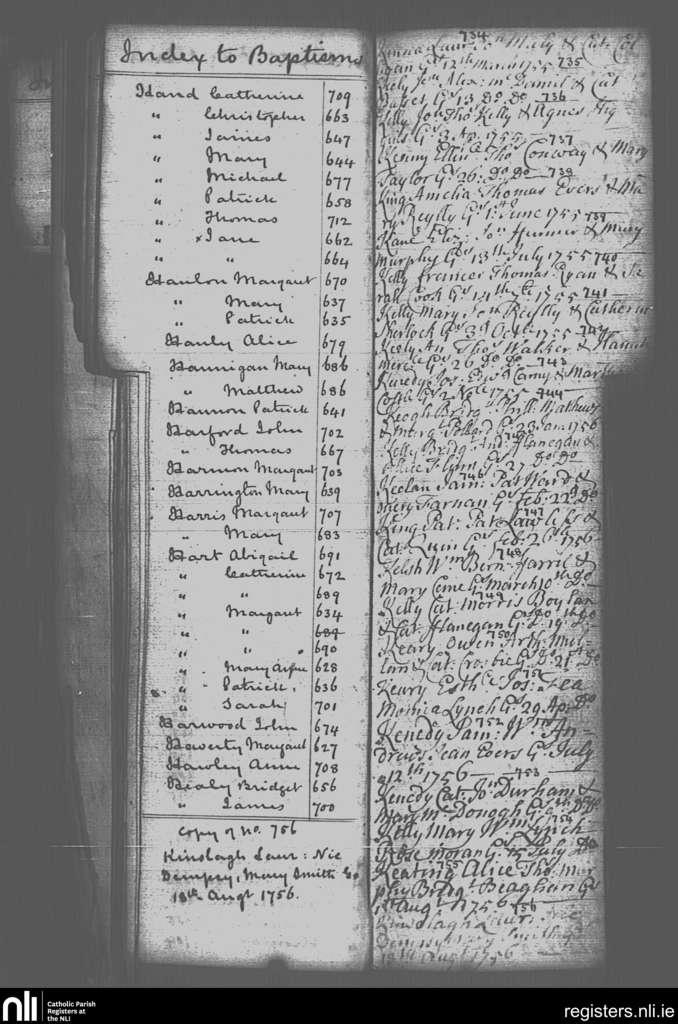 Index to Baptisms
Hand Catherine 709
" Christopher 663
" James 647
" Mary 644
" Michael 677
" Patrick 658
" Thomas 712
" x Jane 662
" " 664
Hanlon Margaret 670
" Mary 637
" Patrick 635
Hanly Alice 679
Hannigan Mary 686
" Matthew 686
Hannon Patrick 641
Harford John 702
" Thomas 667
Harmon Margaret 703
Harrington Mary 639
Harris Margaret 707
" Mary 683
Hart Abigail 691
" Catherine 672
" " 689
" Margaret 634
" " 689
" " 690
" Mary Anne 628
" Patrick 636
" Sarah 701
Harwood John 674
Haverty Margaret 627
Hawley Anne 708
Healy Bridget 656
" James 700
Copy of No. 756
Kinslagh Laur: Nic
Dempsey, Mary Smith Gs
18th Augt 1756.
734
12th March 1755 735
Gs 13 Do Do 736
Kelly Jon Thos Kelly & Agnes
Gs 3 Ap: 1755 737
Kenny Ellin Thos Conway & Mary
Taylor Gs 26: Do Do 738
King Amelia Thomas Evers & Ma
ry Reylly Gs 1st June 1755 739
Kane Eliz: & Mary
Murphy Gs 13th July 1755 740
Kelly Frances Thomas Ryan & Se
rah Cook Gs 14th 1755 741
Kelly Mary Jon Reylly & Catherine
Sherlock Gs 3d Octr 1755 742
Keely An Thos Walker & Hannah
Gs 26 Do Do 743
Kenedy Jos:
Gs 2 1755 744
Keogh Bridgt Matthews
& Margt Pollard Gs 23 Jan 1756
Kelly Bridgt And: Flanegan &
Alice Flynn Gs 27 Do Do
Keelan Jam: Pat Ward &
Mary Farnan Gs Feb: 22d Do
747
King Pat: Pat Lawless &
Cat: Quin Gs Feb: 26 1756
748
Welsh Wm Bern: Farril &
Mary Gs March 10th Do
749
Kelly Cat: Morris Boylan
& Cat: Flanegan Gs 19 Do
750
Keary Owen Arth: Mul-
len & Cat: 21 Do
Keary Esthr Jos: Lea
Monica Lynch Gs 29 Ap: Do
752
Kenedy Jam: Wm An-
drews Jean Evers Gs July
12th 1756 753
Kenedy Cat: Jon Durham &
Mary McDonogh Gs
754
Kelly Mary Wm Lynch
Rose Moran Gs 15 July Do
755
Keating Alice Thos Mur
phy Bridgt Beaghan Gs
1st Augt 1756 756
Kinslagh Laur: Nic
Dempsey Mary Smith Gs
18th Augt 1756
nli
Catholic Parish
Registers at
the NLI
registers.nli.ie